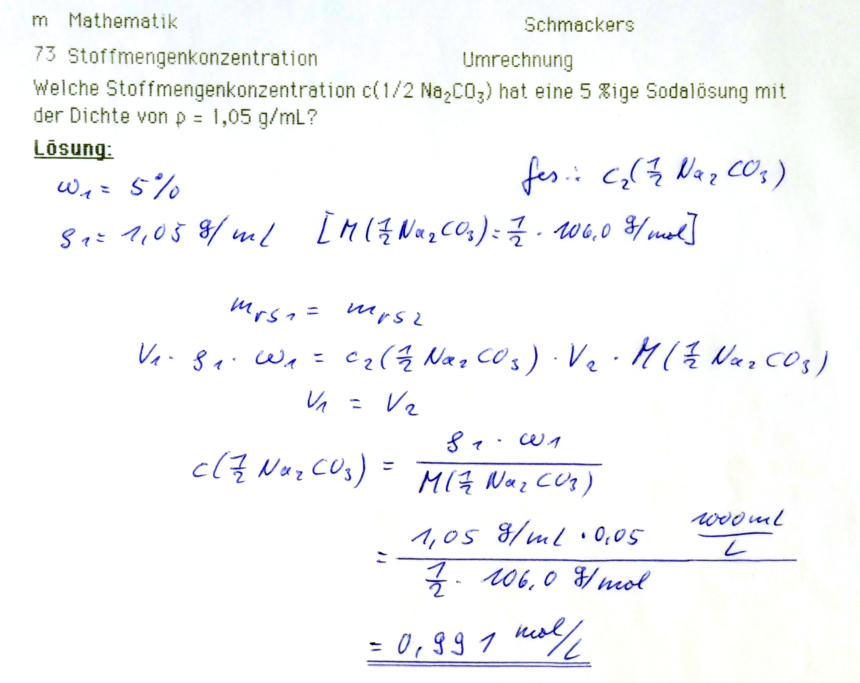 m Mathematik Schmackers
73 Stoffmengenkonzentration Umrechnung
Welche Stoffmengenkonzentration c(1/2 Na₂CO₃) hat eine 5 %ige Sodalösung mit
der Dichte von ρ = 1,05 g/mL?
Lösung:
ω₁ = 5% ges.: c₂(½ Na₂CO₃)
ρ₁ = 1,05 g/ml [M(½ Na₂CO₃) = ½ · 106,0 g/mol]
m_rS1 = m_rS2
V₁ · ρ₁ · ω₁ = c₂(½ Na₂CO₃) · V₂ · M(½ Na₂CO₃)
V₁ = V₂
c(½ Na₂CO₃) = ρ₁ · ω₁ / M(½ Na₂CO₃)
= 1,05 g/ml · 0,05 1000ml/L / ½ · 106,0 g/mol
= 0,991 mol/L